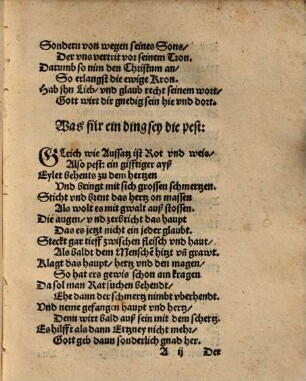 Sondern von wegen seines Sons/
Der vns vertrit vor seinem Tron.
Darumb so nim den Christum an/
So erlangst die ewige Kron.
Hab jhn Lieb/ vnd glaub recht seinem wort/
Gott wirt dir gnedig sein hie vnd dort.
Was für ein ding sey die pest:
GLeich wie Aussatz ist Rot vnd weis/
Also pest: ein gifftiger ayß
Eylet behents zu dem hertzen
Vnd bringt mit sich grossen schmertzen.
Sticht vnd brent das hertz on massen
Als wolt es mit gwalt auß stossen.
Die augen/ vnd zerbricht das haupt
Das es jetzt nicht ein jeder glaubt.
Steckt gar tieff zwischen fleisch vnd haut/
Als baldt dem Menschē hitzt vñ grawt.
Klagt das haupt/ hertz vnd den magen/
So hat ers gewis schon am kragen
Da sol man Rat suchen behendt/
Ehe dann der schmertz nimbt vberhendt.
Vnd neme gefangen haupt vnd hertz/
Denn wirt bald auß sein mit dem schertz.
Es hilfft als dann Ertzney nicht mehr/
Gott geb dann sonderlich gnad her.
A ij Der